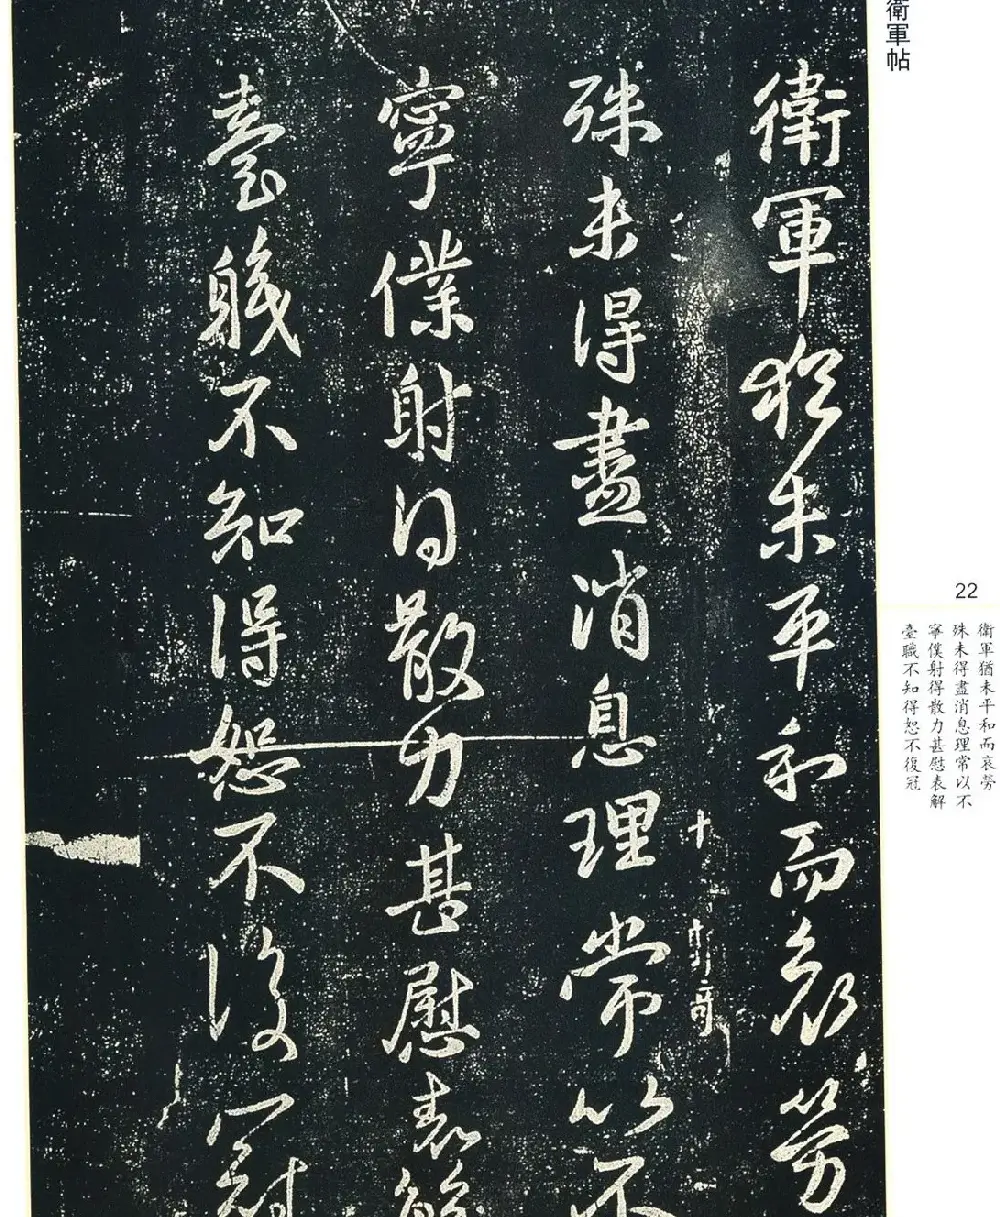 衛軍帖
衛軍猶未平和而哀勞
殊未得盡消息理常以不
寧僕射得散力甚慰表解
臺職不知得恕不復冠
22
衛軍猶未平和而哀勞
殊未得盡消息理常以不
寧僕射得散力甚慰表解
臺職不知得恕不復冠